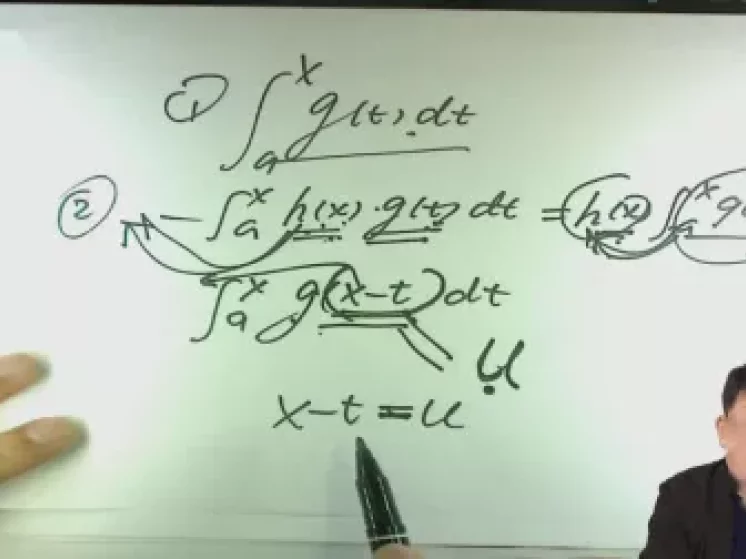 ① ∫ₐˣ g(t) dt
② ∫ₐˣ h(x)·g(t) dt = h(x) ∫ₐˣ g(
∫ₐˣ g(x-t) dt
u
x-t=u